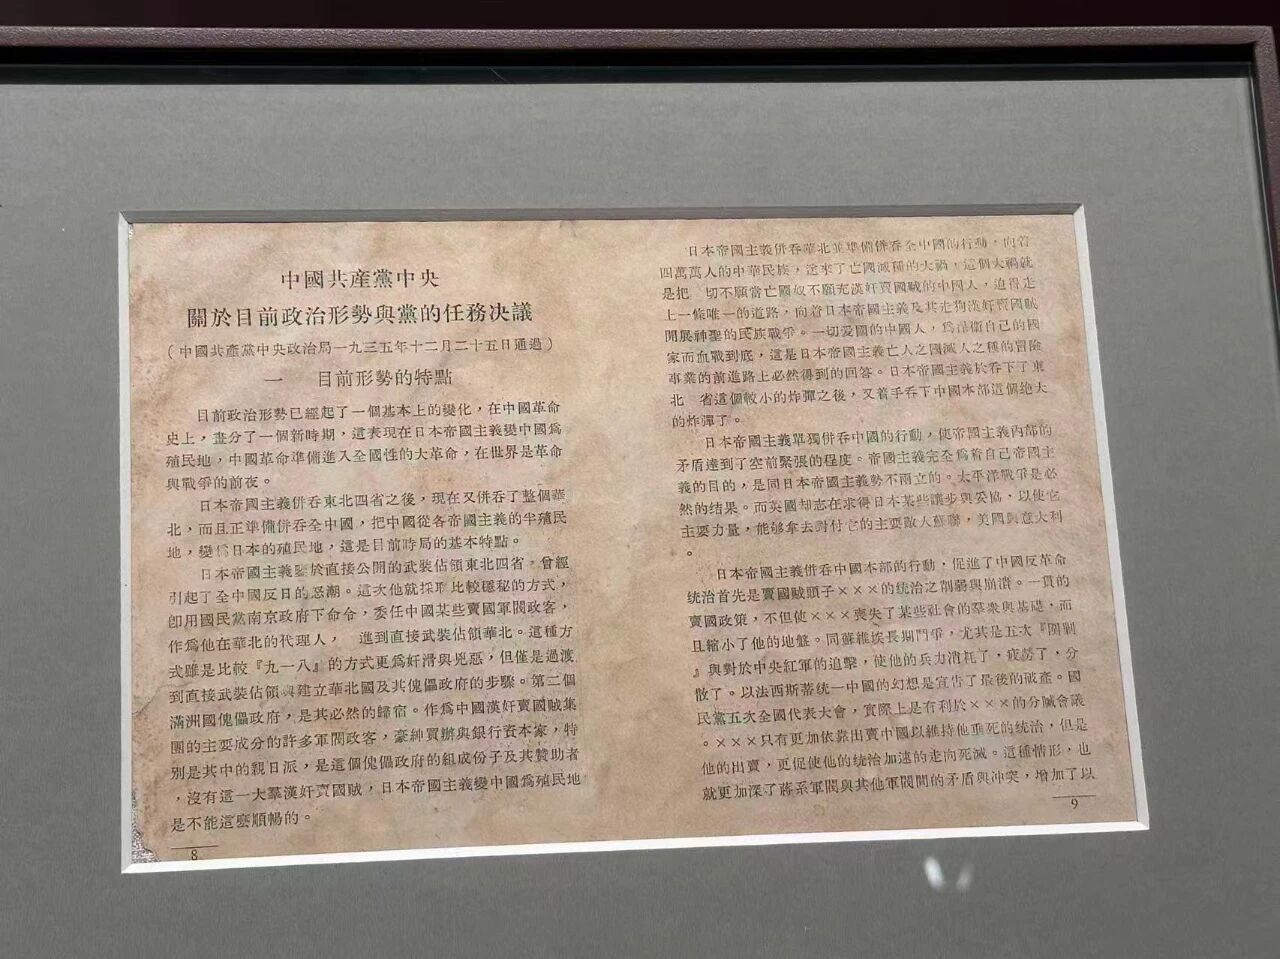 中國共產黨中央
關於目前政治形勢與黨的任務決議
（中國共產黨中央政治局一九三五年十二月二十五日通過）
一　目前形勢的特點
目前政治形勢已經起了一個基本上的變化，在中國革命
史上，畫分了一個新時期，這表現在日本帝國主義變中國爲
殖民地，中國革命準備進入全國性的大革命，在世界是革命
與戰爭的前夜。
日本帝國主義併吞東北四省之後，現在又併吞了整個華
北，而且正準備併吞全中國，把中國從各帝國主義的半殖民
地，變爲日本的殖民地，這是目前時局的基本特點。
日本帝國主義鑒於直接公開的武裝佔領東北四省，曾經
引起了全中國反日的怒潮。這次他就採取比較穩秘的方式，
卽用國民黨南京政府下命令，委任中國某些賣國軍閥政客，
作爲他在華北的代理人，　進到直接武裝佔領華北。這種方
式雖是比較『九一八』的方式更爲奸滑與兇惡，但僅是過渡
到直接武裝佔領與建立華北國及其傀儡政府的步驟。第二個
滿洲國傀儡政府，是其必然的歸宿。作爲中國漢奸賣國賊集
團的主要成分的許多軍閥政客，豪紳買辦與銀行資本家，特
別是其中的親日派，是這個傀儡政府的組成份子及其贊助者
，沒有這一大羣漢奸賣國賊，日本帝國主義變中國爲殖民地
是不能這麼順暢的。
8
日本帝國主義併吞華北並準備併吞全中國的行動，向着
四萬萬人的中華民族，送來了亡國滅種的大禍，這個大禍就
是把　切不願當亡國奴不願充漢奸賣國賊的中國人，迫得走
上一條唯一的道路，向着日本帝國主義及其走狗漢奸賣國賊
開展神聖的民族戰爭。一切愛國的中國人，爲保衛自己的國
家而血戰到底，這是日本帝國主義亡人之國滅人之種的冒險
事業的前進路上必然得到的回答。日本帝國主義於吞下了東
北　省這個較小的炸彈之後，又着手吞下中國本部這個絕大
的炸彈了。
日本帝國主義單獨併吞中國的行動，使帝國主義內部的
矛盾達到了空前緊張的程度。帝國主義完全爲着自己帝國主
義的目的，是同日本帝國主義勢不兩立的。太平洋戰爭是必
然的結果。而英國却志在求得日本某些讓步與妥協，以使它
主要力量，能够拿去對付它的主要敵人蘇聯，美國與意大利
。
日本帝國主義併吞中國本部的行動，促進了中國反革命
統治首先是賣國賊頭子×××的統治之削弱與崩潰。一貫的
賣國政策，不但使×××喪失了某些社會的羣衆與基礎，而
且縮小了他的地盤。同蘇維埃長期鬥爭，尤其是五次『圍剿
』與對於中央紅軍的追擊，使他的兵力消耗了，疲勞了，分
散了。以法西斯蒂統一中國的幻想是宣告了最後的破產。國
民黨五次全國代表大會，實際上是有利於×××的分贓會議
。×××只有更加依靠出賣中國以維持他垂死的統治，但是
他的出賣，更促使他的統治加速的走向死滅。這種情形，也
就更加深了蔣系軍閥與其他軍閥間的矛盾與冲突，增加了以
9